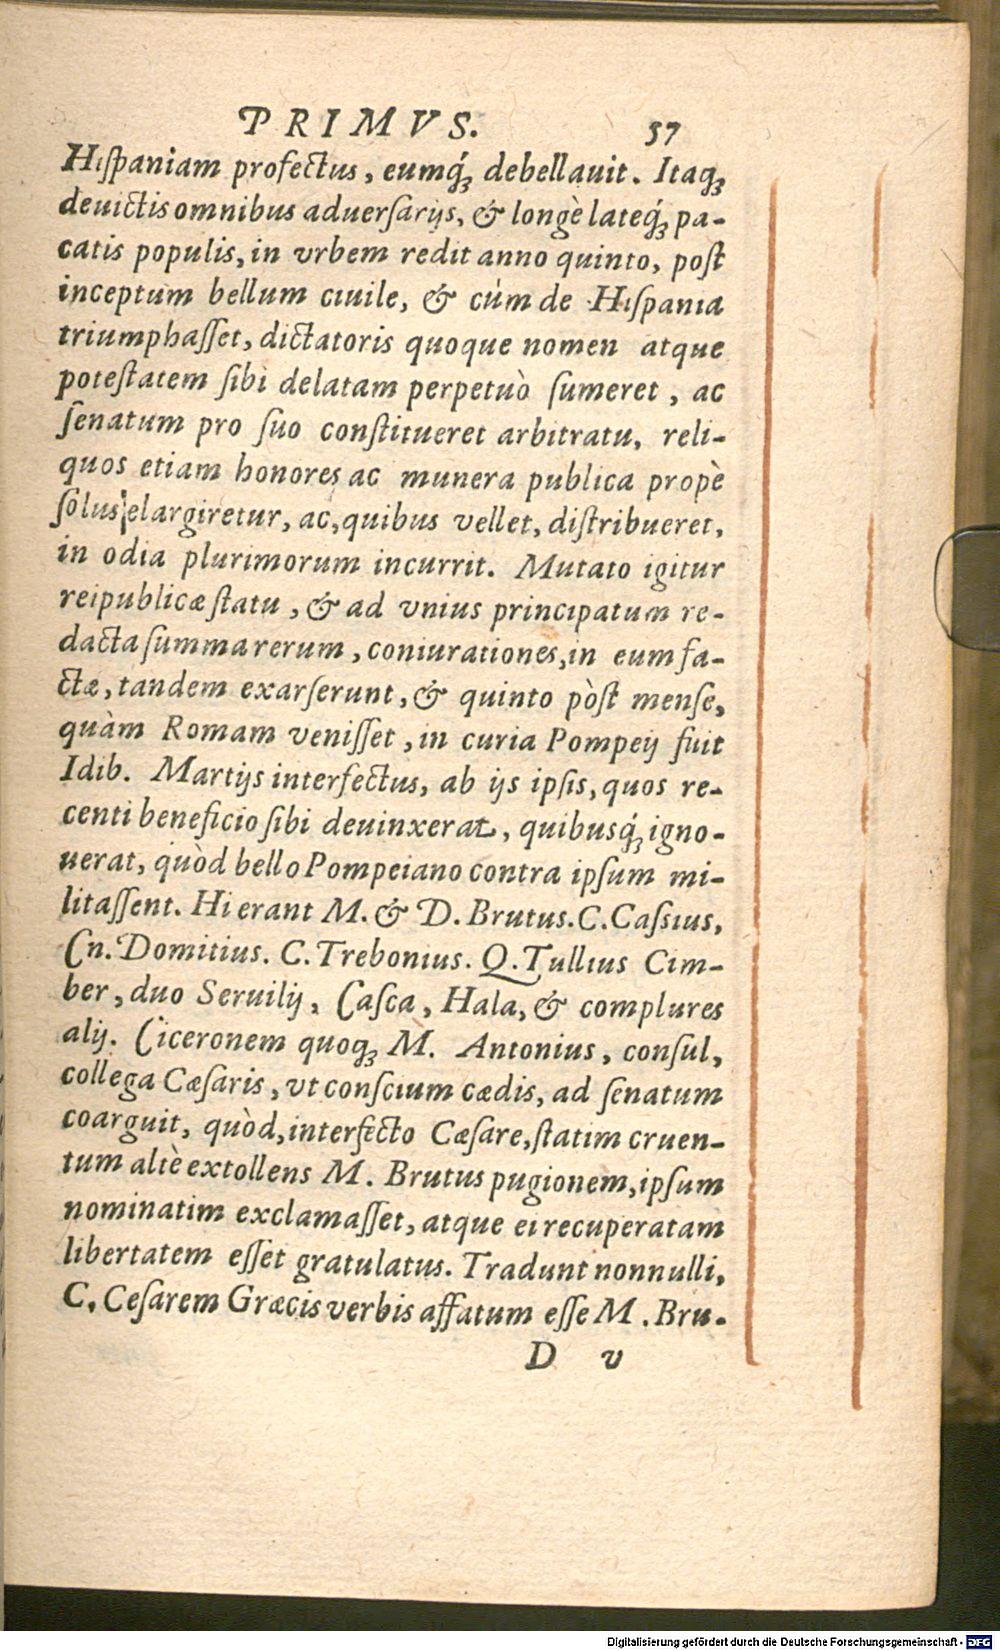 PRIMVS. 57
Hiſpaniam profectus, eumq́ꝫ debellauit. Itaqꝫ
deuictis omnibus aduerſarijs, & longè lateq́ꝫ pa-
catis populis, in vrbem redit anno quinto, poſt
inceptum bellum ciuile, & cúm de Hiſpania
triumphaſſet, dictatoris quoque nomen atque
poteſtatem ſibi delatam perpetuò ſumeret, ac
ſenatum pro ſuo conſtitueret arbitratu, reli-
quos etiam honores ac munera publica propè
ſolus elargiretur, ac, quibus vellet, diſtribueret,
in odia plurimorum incurrit. Mutato igitur
reipublicæ ſtatu, & ad vnius principatum re-
dacta ſumma rerum, coniurationes, in eum fa-
ctæ, tandem exarſerunt, & quinto pòſt menſe,
quàm Romam veniſſet, in curia Pompeij fuit
Idib. Martijs interfectus, ab ijs ipſis, quos re-
centi beneficio ſibi deuinxerat, quibusq́ꝫ igno-
uerat, quòd bello Pompeiano contra ipſum mi-
litaſſent. Hi erant M. & D. Brutus. C. Caſsius,
Cn. Domitius. C. Trebonius. Q. Tullius Cim-
ber, duo Seruilij, Caſca, Hala, & complures
alij. Ciceronem quoqꝫ M. Antonius, conſul,
collega Cæſaris, vt conſcium cædis, ad ſenatum
coarguit, quòd, interfecto Cæſare, ſtatim cruen-
tum altè extollens M. Brutus pugionem, ipſum
nominatim exclamaſſet, atque ei recuperatam
libertatem eſſet gratulatus. Tradunt nonnulli,
C. Ceſarem Græcis verbis affatum eſſe M. Bru-
D v
Digitalisierung gefördert durch die Deutsche Forschungsgemeinschaft - DFG